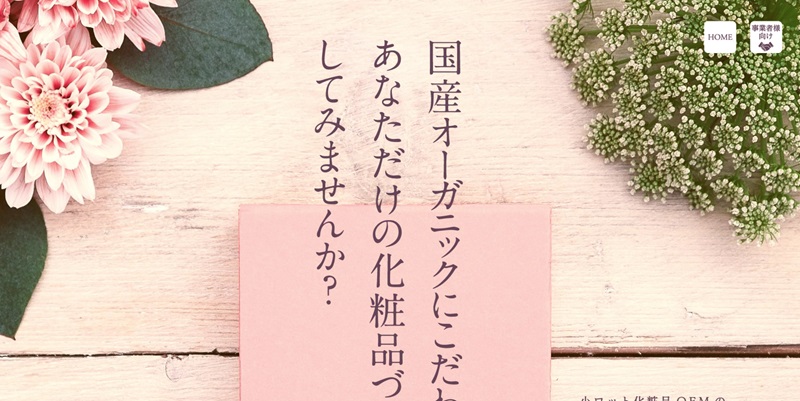 国産オーガニックにこだわ
あなただけの化粧品づ
してみませんか?
HOME
事業者様
向け
小ロット化粧品OEMの